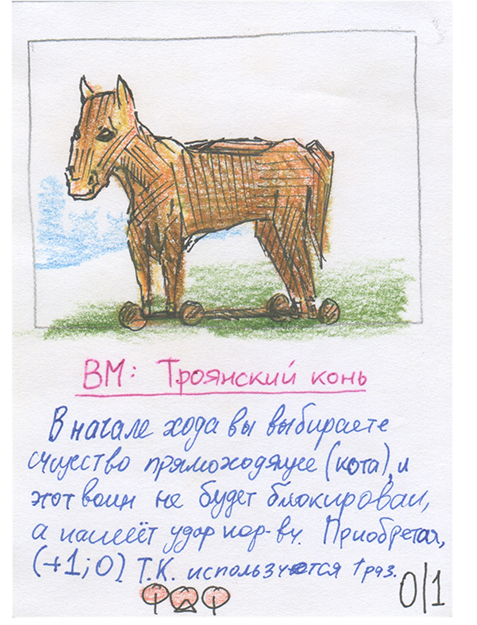 ВМ: Троянский конь
В начале хода вы выбираете
существо прямоходящее (кота), и
этот воин не будет блокирован,
а нанесёт удар кор-ву. Приобретая,
(+1;0) Т.К. используется 1 раз.
0/1